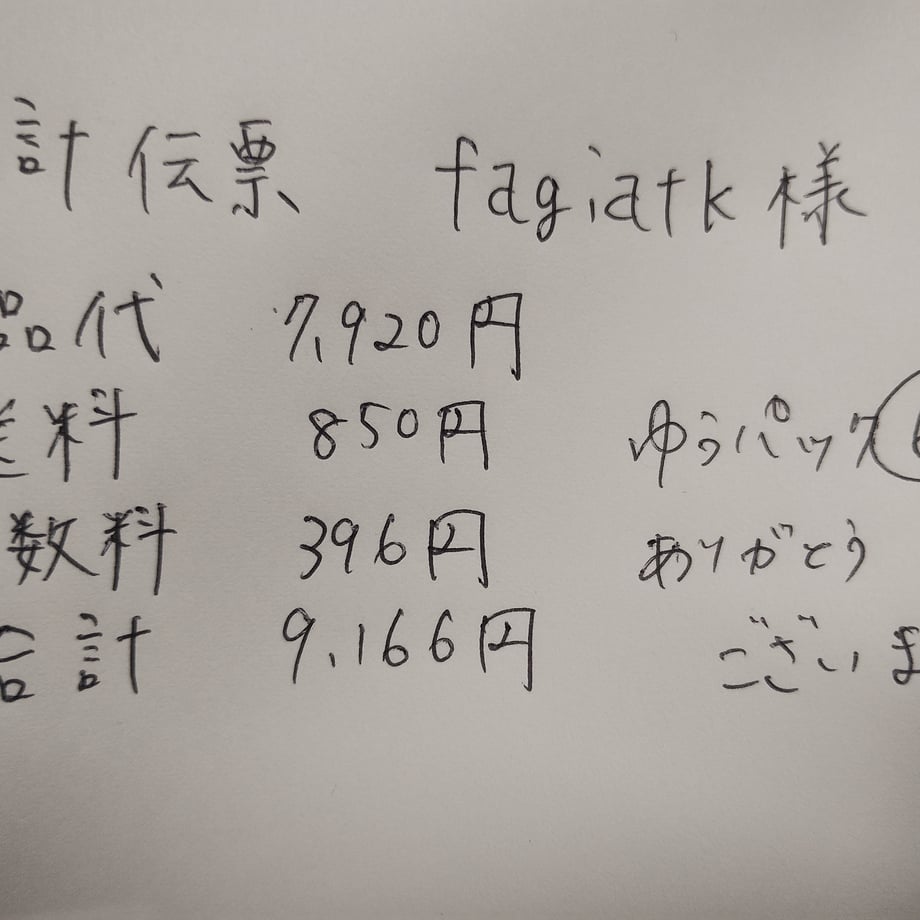 計伝票 fagiatk様
品代 7,920円
送料 850円 ゆうパック
数料 396円 ありがとう
合計 9,166円 ございま